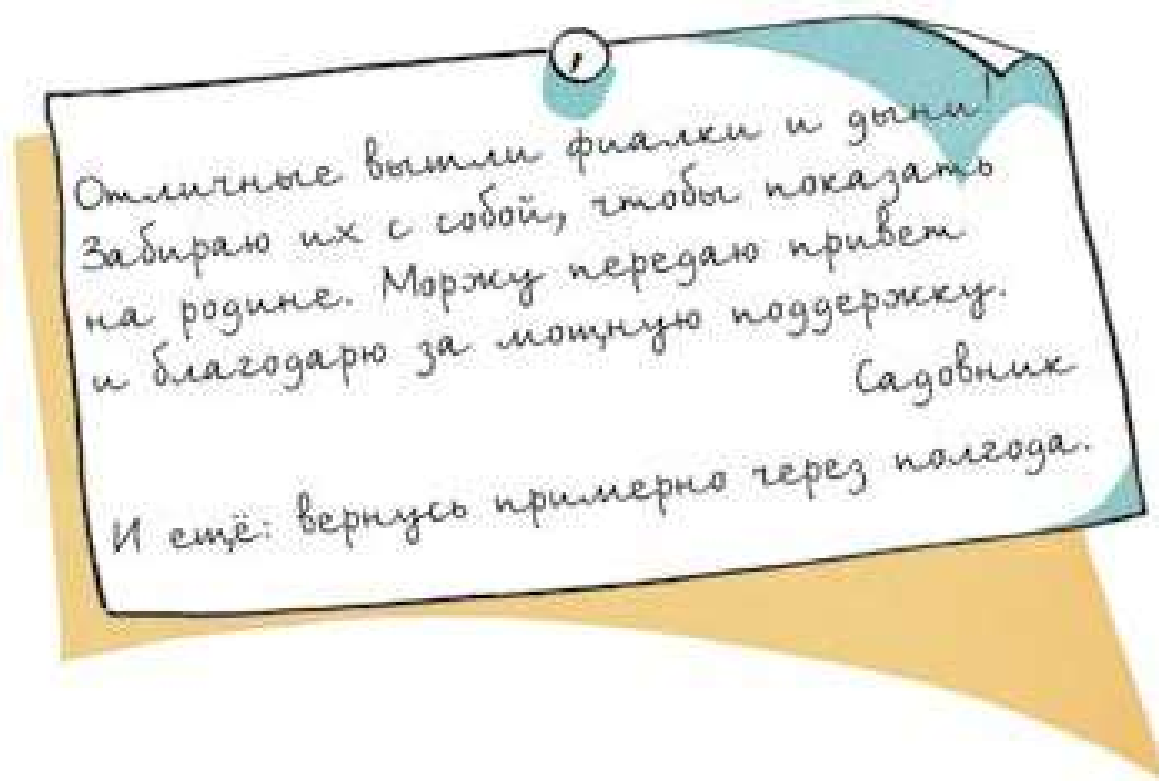 Отличные вышли фиалки и дыни
Забираю их с собой, чтобы показать
на родине. Моржу передаю привет
и благодарю за мощную поддержку.
Садовник
И ещё: вернусь примерно через полгода.